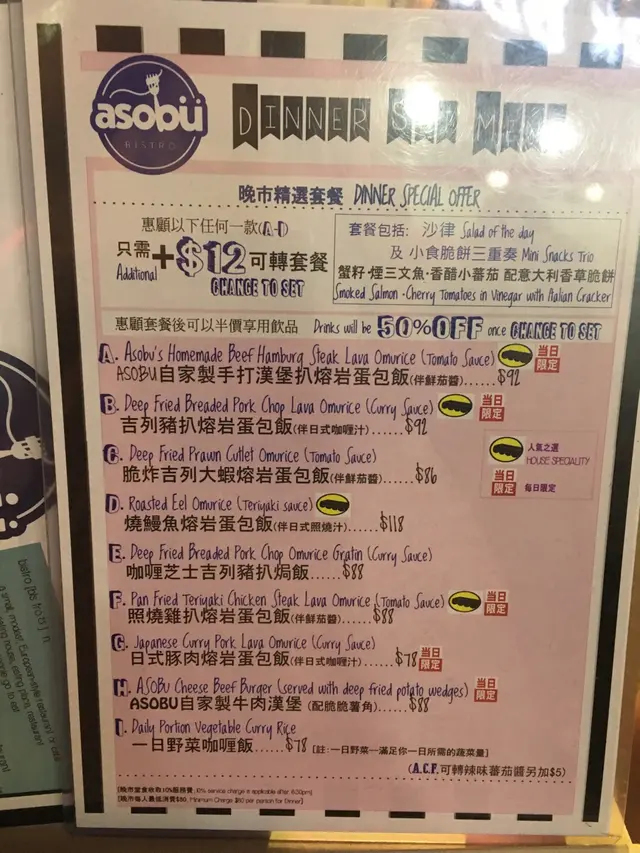 asobü
BISTRO
DINNER SET MENU
晚市精選套餐 DINNER SPECIAL OFFER
惠顧以下任何一款(A-I)
只需 +$12 可轉套餐
Additional CHANGE TO SET
套餐包括: 沙律 Salad of the day
及 小食脆餅三重奏 Mini Snacks Trio
蟹籽·煙三文魚·香醋小蕃茄 配意大利香草脆餅
Smoked Salmon · Cherry Tomatoes in Vinegar with Italian Cracker
惠顧套餐後可以半價享用飲品 Drinks will be 50%OFF once CHANGE TO SET
A. Asobu's Homemade Beef Hamburg Steak Lava Omurice (Tomato Sauce) 當日限定
ASOBU自家製手打漢堡扒熔岩蛋包飯(伴鮮茄醬)......$92
B. Deep Fried Breaded Pork Chop Lava Omurice (Curry Sauce) 當日限定
吉列豬扒熔岩蛋包飯(伴日式咖喱汁)......$92
C. Deep Fried Prawn Cutlet Omurice (Tomato Sauce)
脆炸吉列大蝦熔岩蛋包飯(伴鮮茄醬)......$86
人氣之選
HOUSE SPECIALITY
當日限定 每日限定
D. Roasted Eel Omurice (Teriyaki sauce)
燒鰻魚熔岩蛋包飯(伴日式照燒汁)......$118
E. Deep Fried Breaded Pork Chop Omurice Gratin (Curry Sauce)
咖喱芝士吉列豬扒焗飯......$88
F. Pan Fried Teriyaki Chicken Steak Lava Omurice (Tomato Sauce) 當日限定
照燒雞扒熔岩蛋包飯(伴鮮茄醬)......$88
G. Japanese Curry Pork Lava Omurice (Curry Sauce)
日式豚肉熔岩蛋包飯(伴日式咖喱汁)......$78 當日限定
H. ASOBU Cheese Beef Burger (served with deep fried potato wedges) 當日限定
ASOBU自家製牛肉漢堡 (配脆脆薯角)......$88
I. Daily Portion Vegetable Curry Rice
一日野菜咖喱飯......$78 [註:一日野菜—滿足你一日所需的蔬菜量]
(A.C.F.可轉辣味蕃茄醬另加$5)
[晚市堂食收取10%服務費, 10% service charge is applicable after 6:00pm]
[晚市每人最低消費$80, Minimum Charge $80 per person for Dinner]